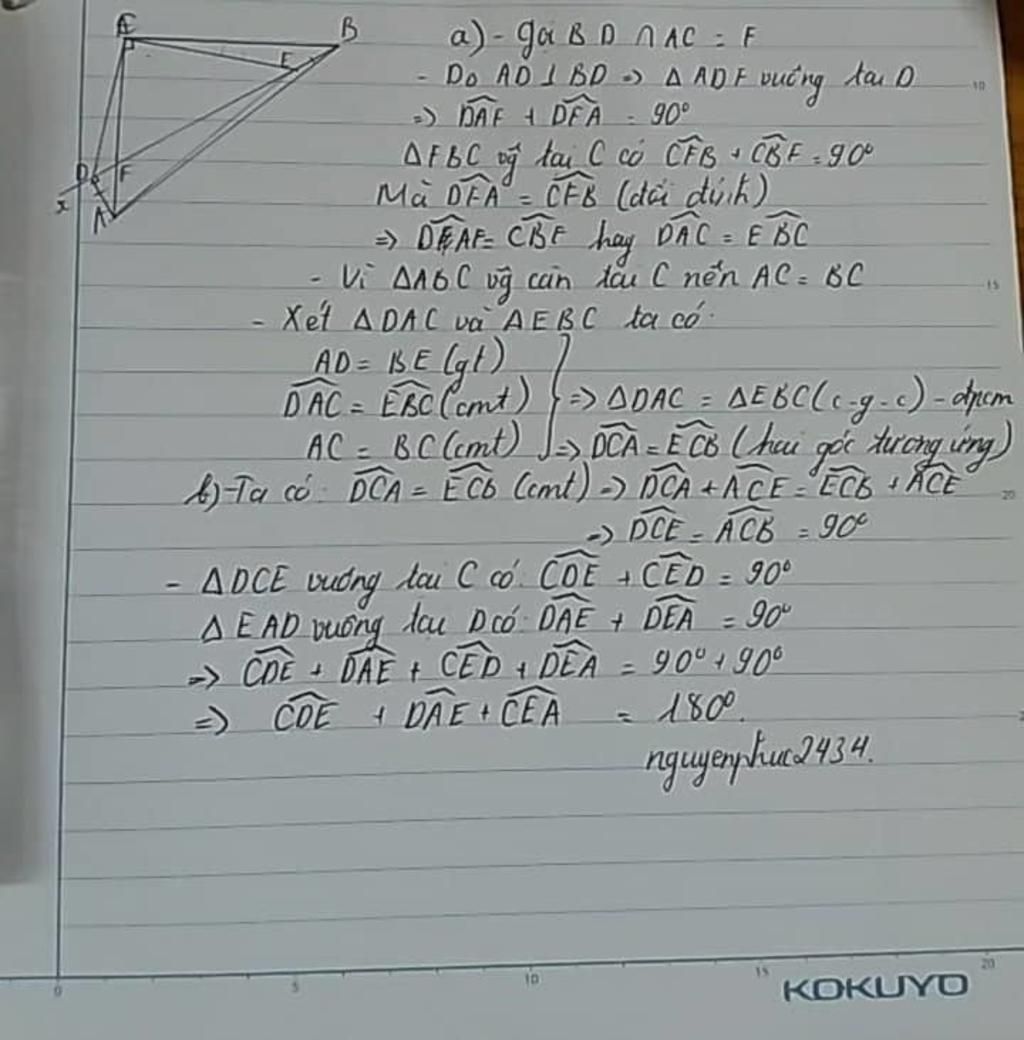 C
B
E
D
F
x
A
a) - Gọi BD ∩ AC = F
- Do AD ⊥ BD => Δ ADF vuông tại D
=> \widehat{DAF} + \widehat{DFA} = 90°
Δ FBC vg tại C có \widehat{CFB} + \widehat{CBF} = 90°
Mà \widehat{DFA} = \widehat{CFB} (đối đỉnh)
=> \widehat{DAF} = \widehat{CBF} hay \widehat{DAC} = \widehat{EBC}
- Vì ΔABC vg cân tại C nên AC = BC
- Xét Δ DAC và Δ EBC ta có:
AD = BE (gt)
\widehat{DAC} = \widehat{EBC} (cmt) } => Δ DAC = Δ EBC (c-g-c) - đpcm
AC = BC (cmt) => \widehat{DCA} = \widehat{ECB} (hai góc tương ứng)
b) - Ta có: \widehat{DCA} = \widehat{ECB} (cmt) => \widehat{DCA} + \widehat{ACE} = \widehat{ECB} + \widehat{ACE}
=> \widehat{DCE} = \widehat{ACB} = 90°
- Δ DCE vuông tại C có: \widehat{CDE} + \widehat{CED} = 90°
Δ EAD vuông tại D có: \widehat{DAE} + \widehat{DEA} = 90°
=> \widehat{CDE} + \widehat{DAE} + \widehat{CED} + \widehat{DEA} = 90° + 90°
=> \widehat{CDE} + \widehat{DAE} + \widehat{CEA} = 180°.
nguyenphuc2434.
10
15
20
0 5 10 15 20
KOKUYO